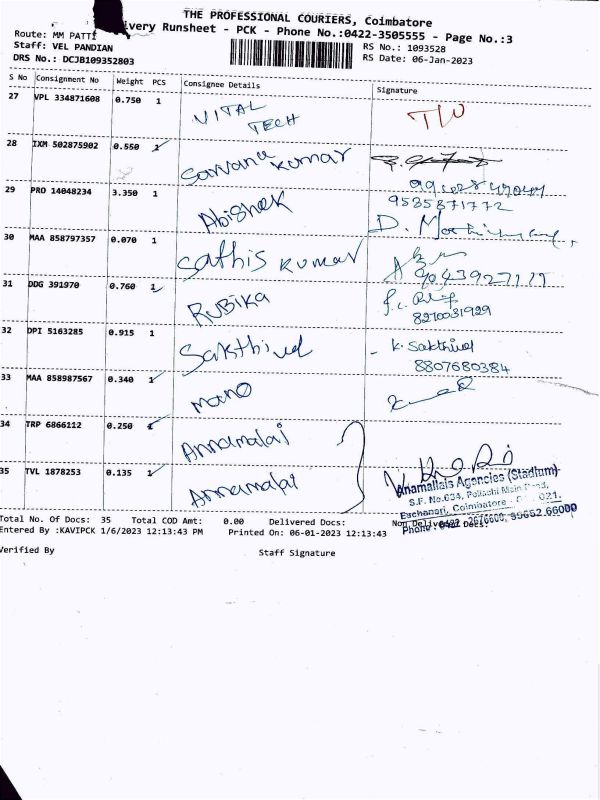 THE PROFESSIONAL COURIERS, Coimbatore
ivery Runsheet - PCK - Phone No.:0422-3505555 - Page No.:3
Route: MM PATTI
Staff: VEL PANDIAN
DRS No.: DCJB109352803
RS No.: 1093528
RS Date: 06-Jan-2023
S No Consignment No Weight PCS Consignee Details Signature
27 VPL 334871608 0.750 1 VITAL TECH
28 IXM 502875902 0.550 1 Sarvana Kumar
29 PRO 14048234 3.350 1 Abishek 9585871772
30 MAA 858797357 0.070 1 Sathis Kumar
31 DDG 391970 0.760 1 RUBIKA 8270031929
32 DPI 5163285 0.915 1 Sakthivel K. Sakthivel
8807680384
33 MAA 858987567 0.340 1 mano
34 TRP 6866112 0.250 1 Annamalai
35 TVL 1878253 0.135 1 Annamalai
Anamallais Agencies (Stadium)
S.F. No.634, Pollachi Main Road,
Eachanari, Coimbatore - 021.
Phone : 0422 - 2676600, 99662 66000
Total No. Of Docs: 35 Total COD Amt: 0.00 Delivered Docs: Non Delivered Docs:
Entered By :KAVIPCK 1/6/2023 12:13:43 PM Printed On: 06-01-2023 12:13:43
Verified By Staff Signature